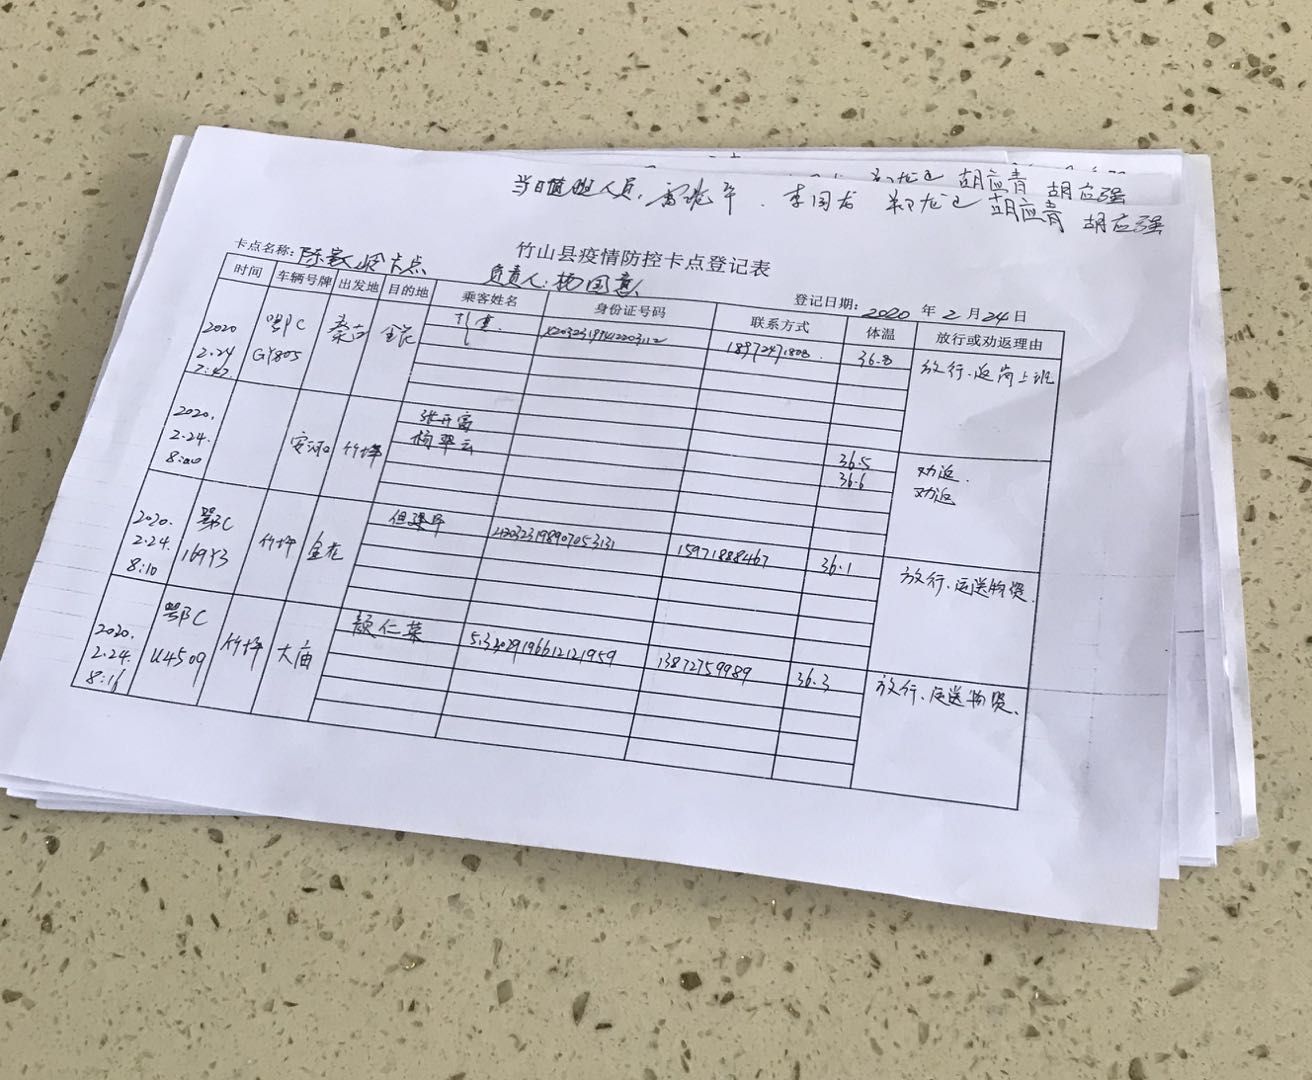 当日值班人员, 李国龙 郑龙卫 胡应青 胡应强
竹山县疫情防控卡点登记表
卡点名称: 陈家 卡点 负责人: 杨国意 登记日期: 2020 年 2 月 24 日
时间 车辆号牌 出发地 目的地 乘客姓名 身份证号码 联系方式 体温 放行或劝返理由
2020 2.24 7:42 鄂C GY805 36.8 放行、返岗上班
2020. 2.24. 8:00 竹坪 张开富 36.5 劝返.
杨翠云 36.6 劝返
2020. 2.24. 8:10 鄂C 169Y3 竹坪 金龙 420323198907053131 15971888467 36.1 放行、运送物资.
2020. 2.24. 8:16 鄂C U4509 竹坪 大庙 颜仁菜 13872759989 36.3 放行、运送物资、